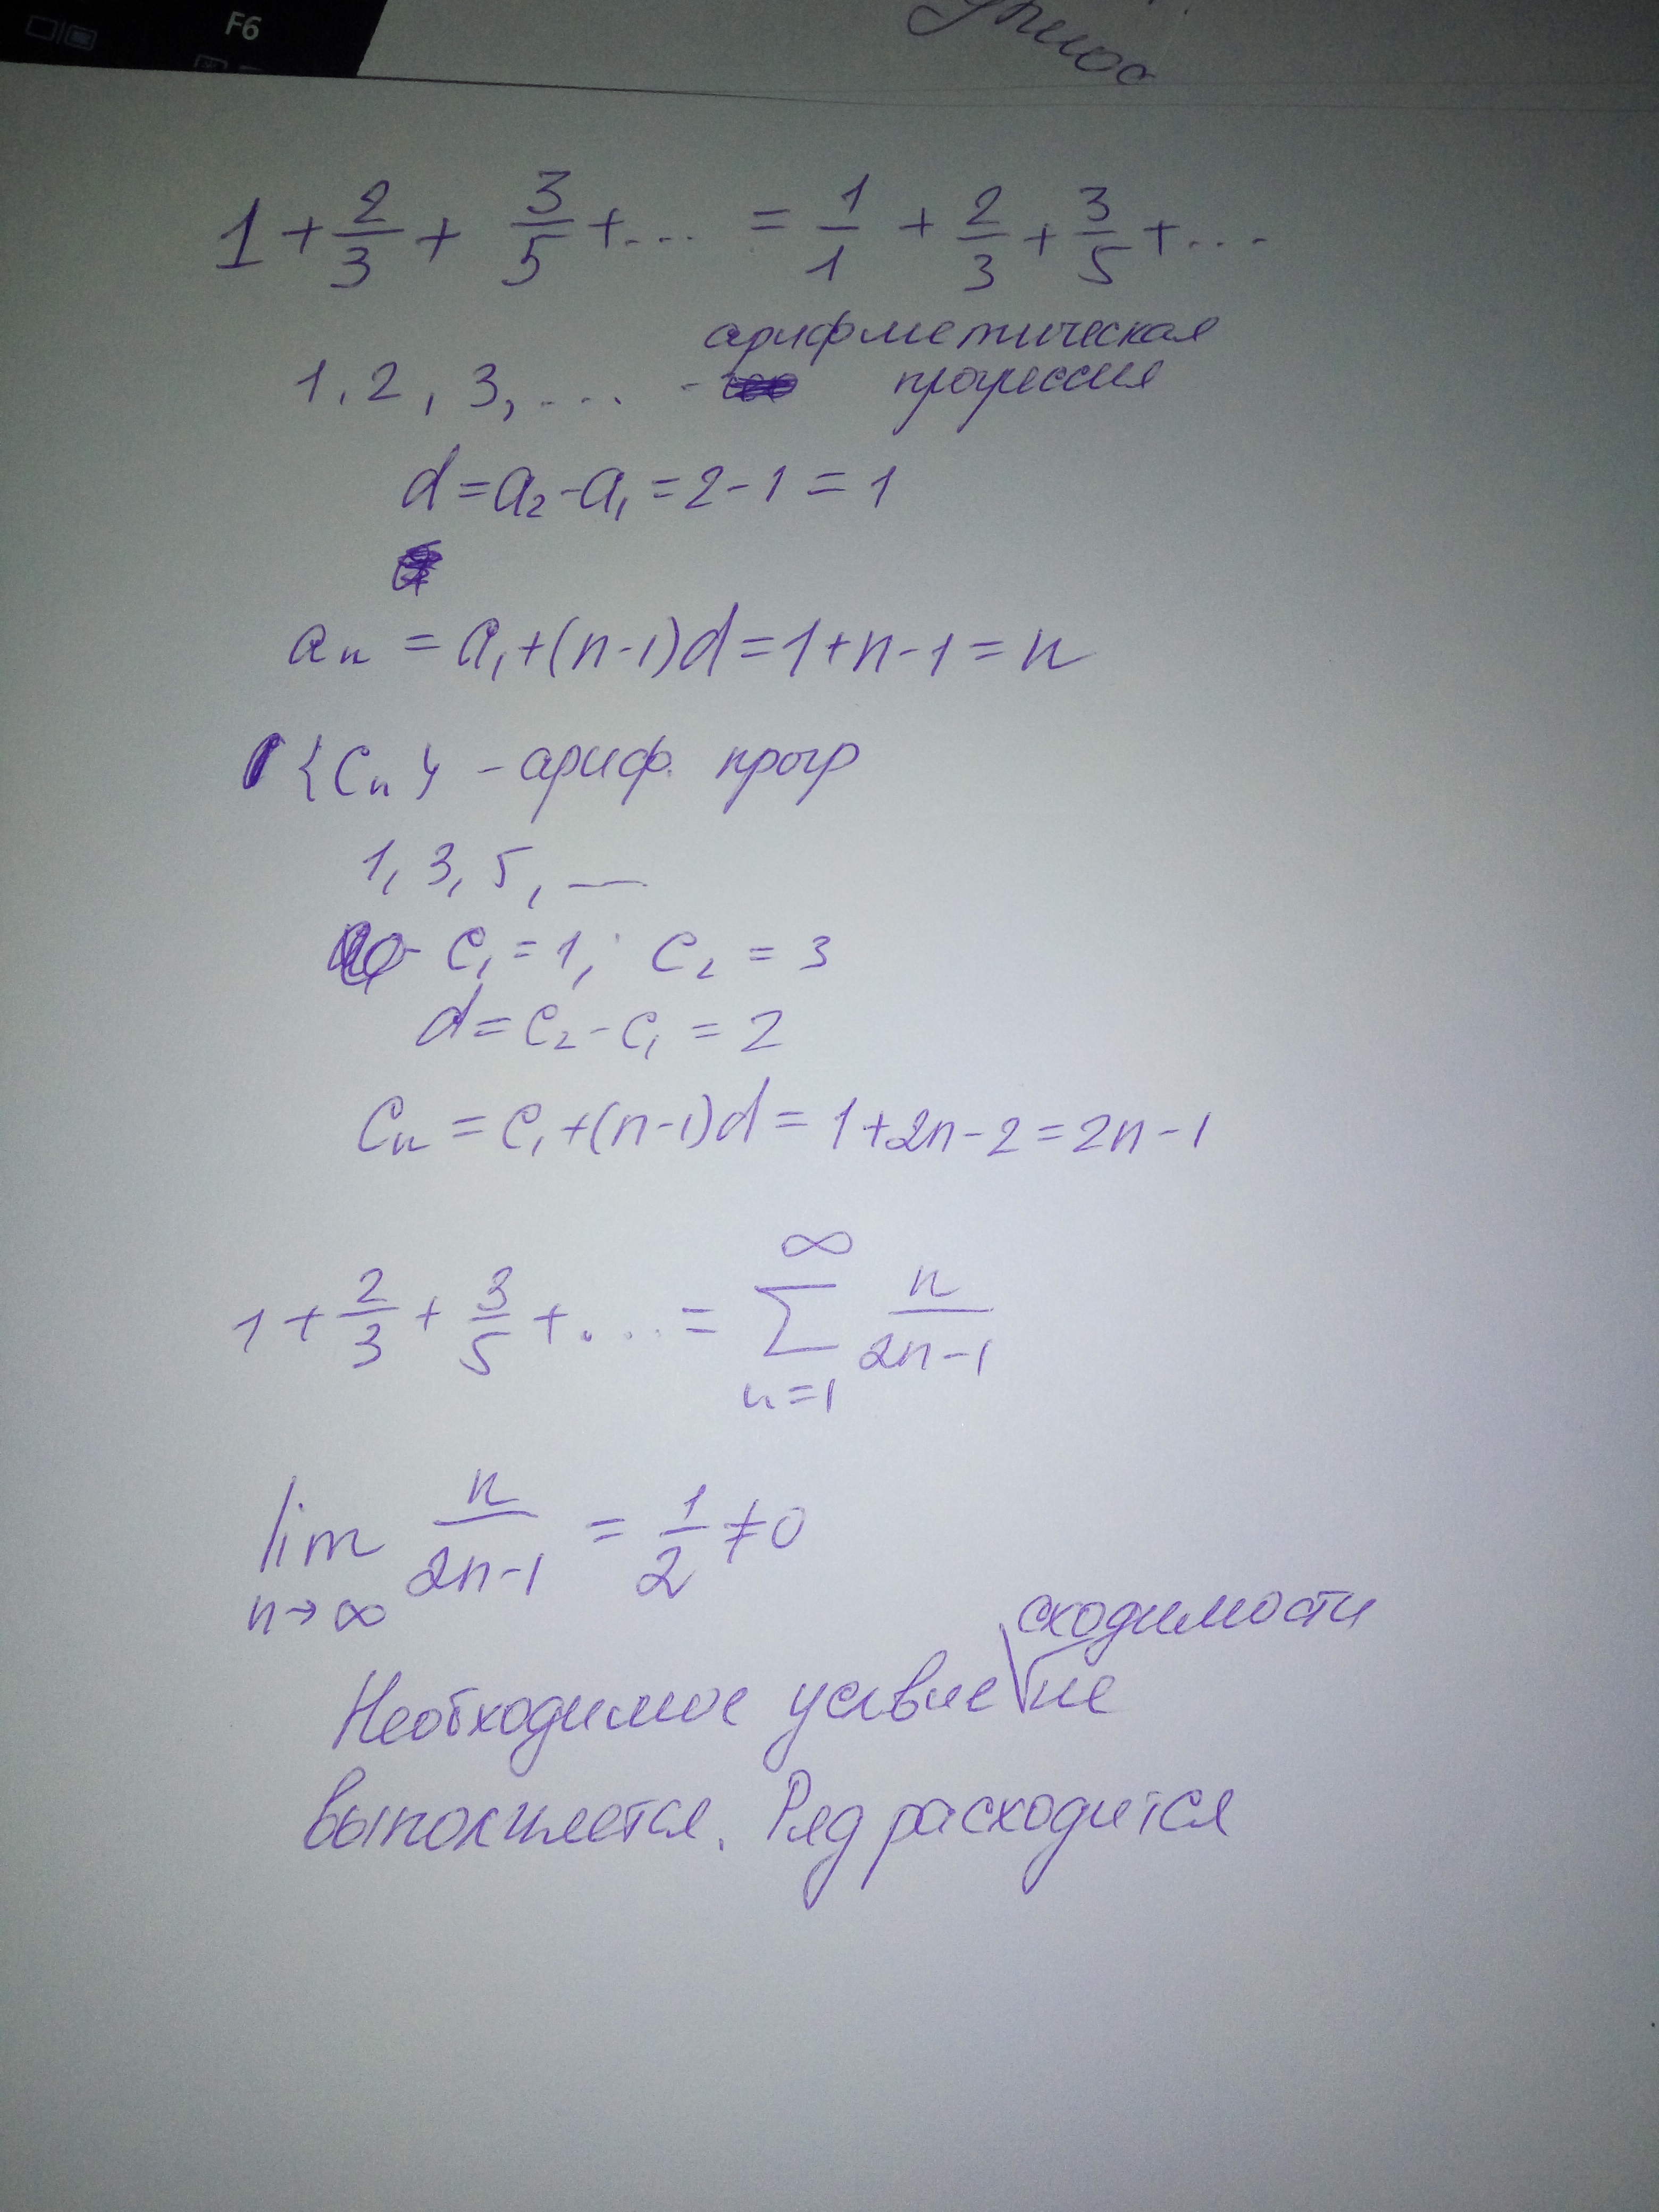 F6
1 + 2/3 + 3/5 + ... = 1/1 + 2/3 + 3/5 + ...
1, 2, 3, ... - арифметическая прогрессия
d = a₂ - a₁ = 2 - 1 = 1
aₙ = a₁ + (n-1)d = 1 + n - 1 = n
{cₙ} - ариф. прогр
1, 3, 5, —
c₁ = 1; c₂ = 3
d = c₂ - c₁ = 2
cₙ = c₁ + (n-1)d = 1 + 2n - 2 = 2n - 1
1 + 2/3 + 3/5 + ... = ∑ₙ₌₁^∞ n/(2n-1)
lim n→∞ n/(2n-1) = 1/2 ≠ 0
Необходимое условие сходимости не
выполняется. Ряд расходится